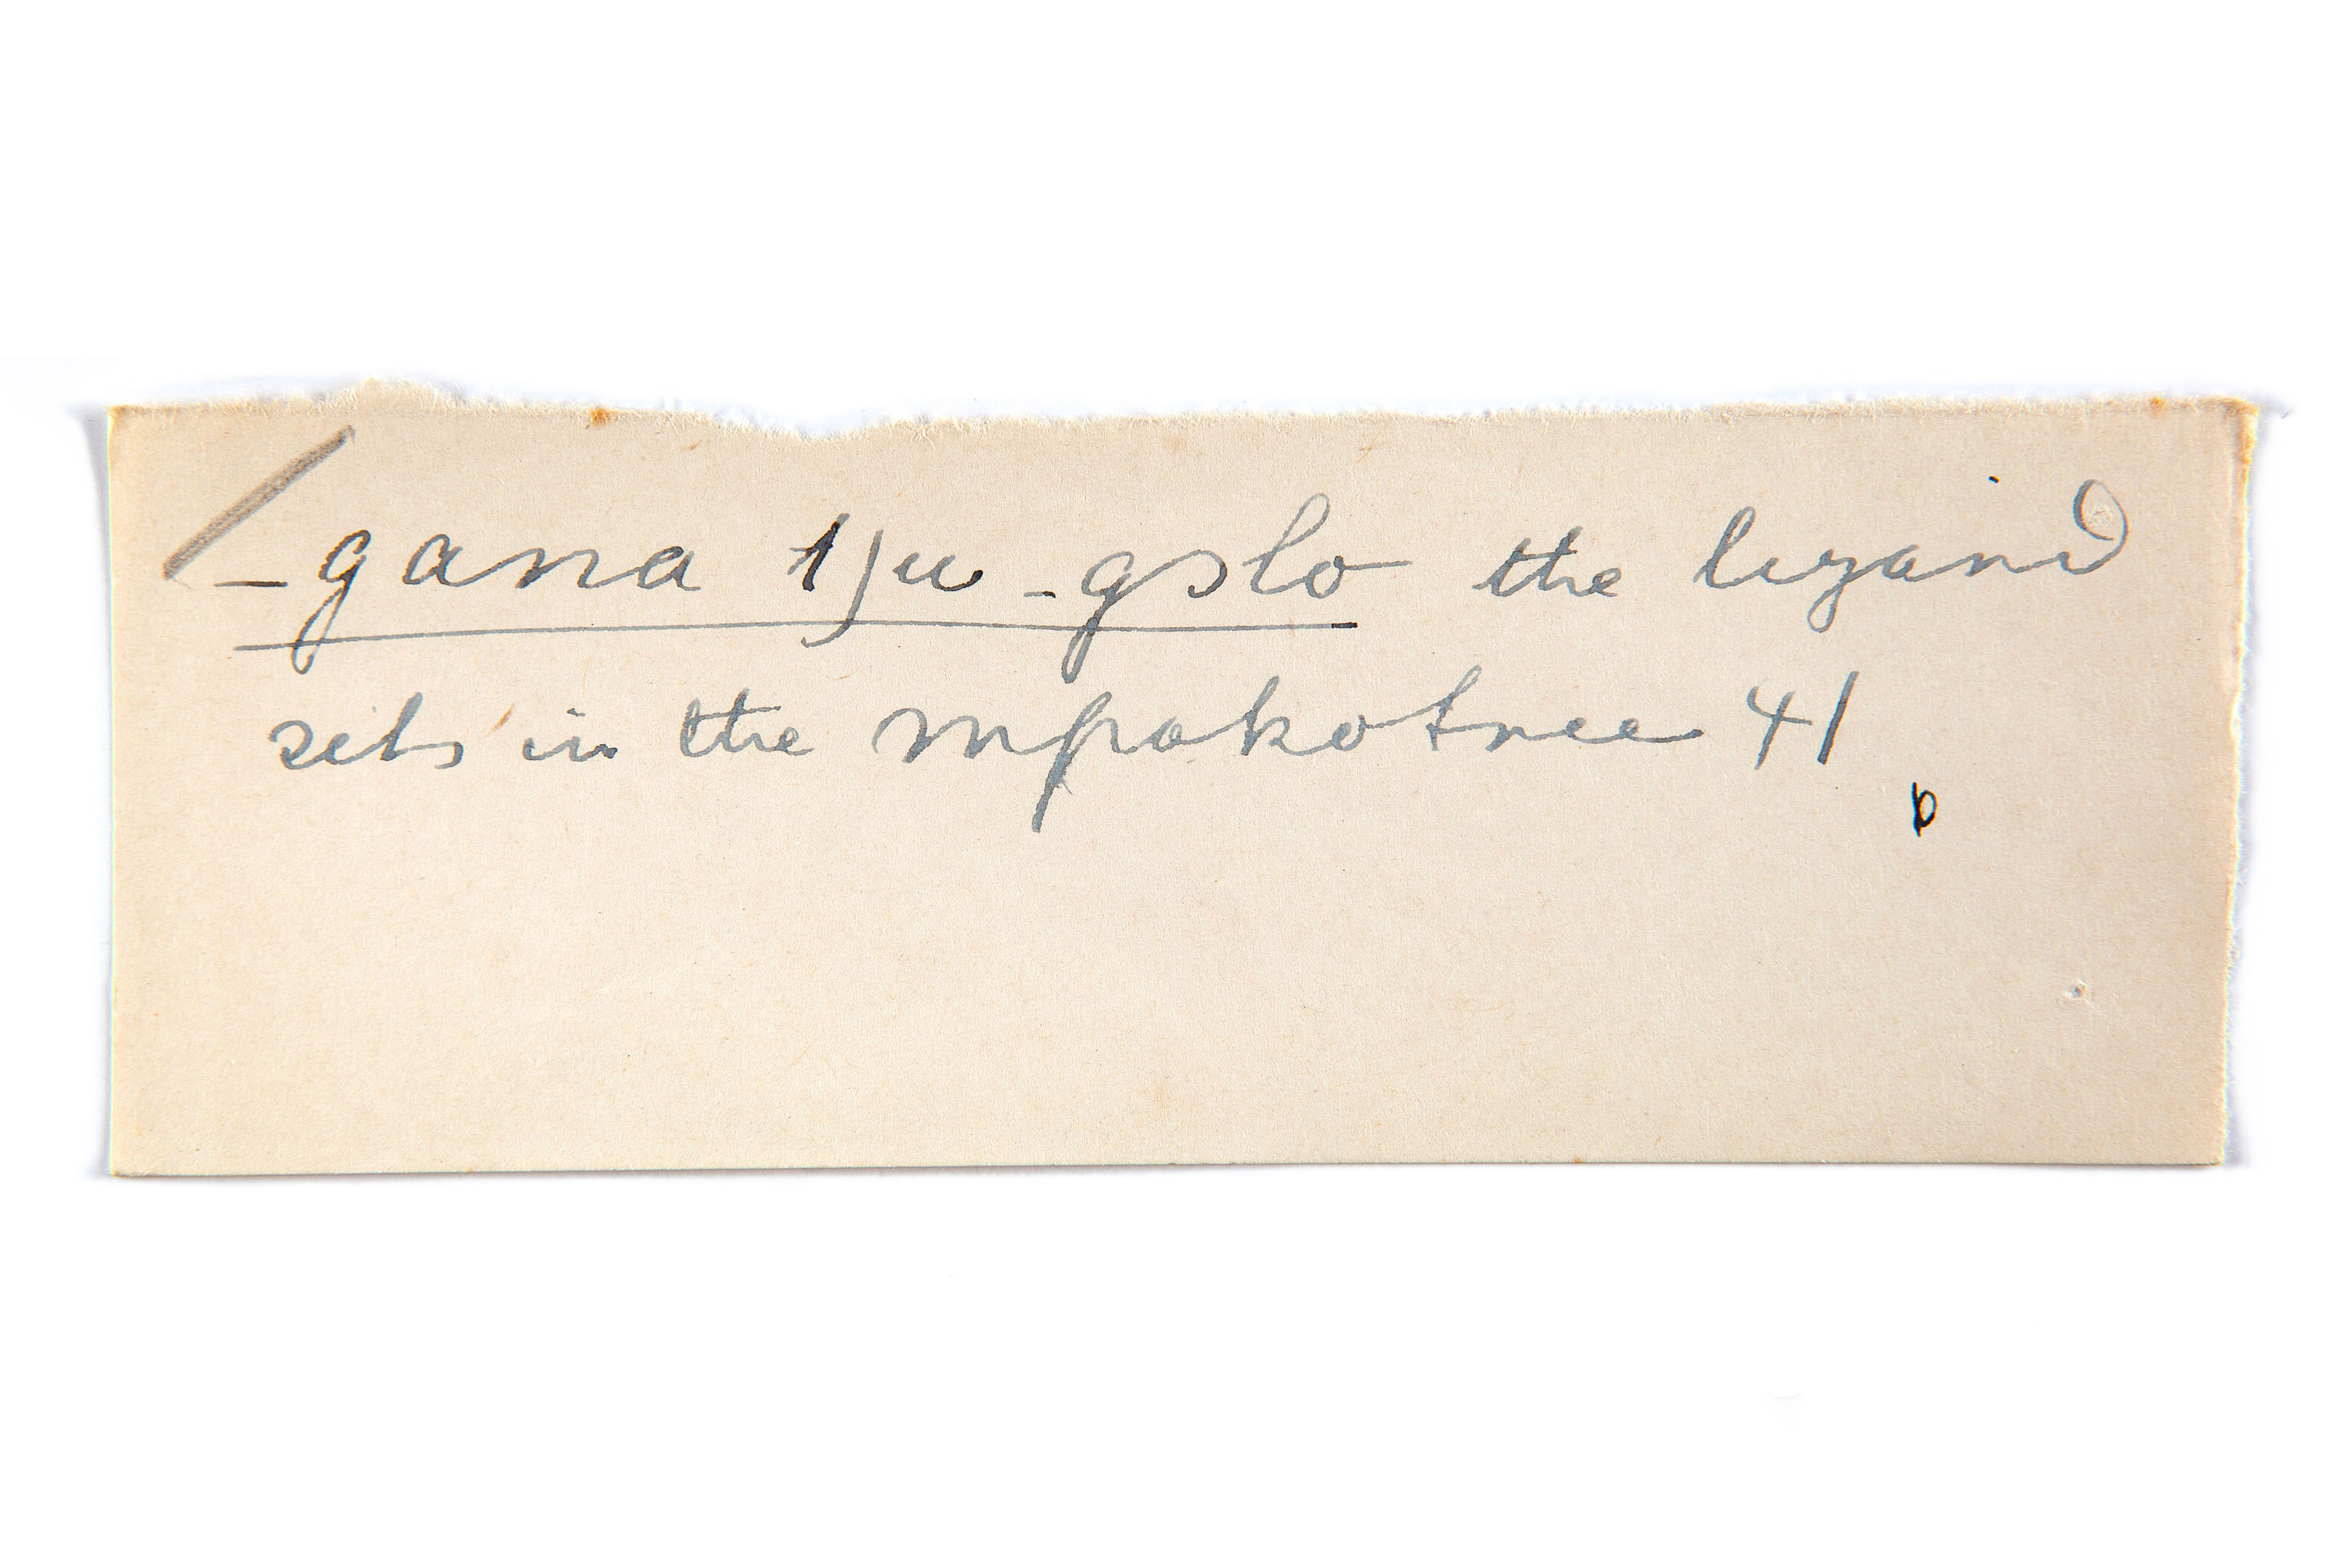 _ garra 1)u _gslo the lizard
sits in the mpokotree 41
b